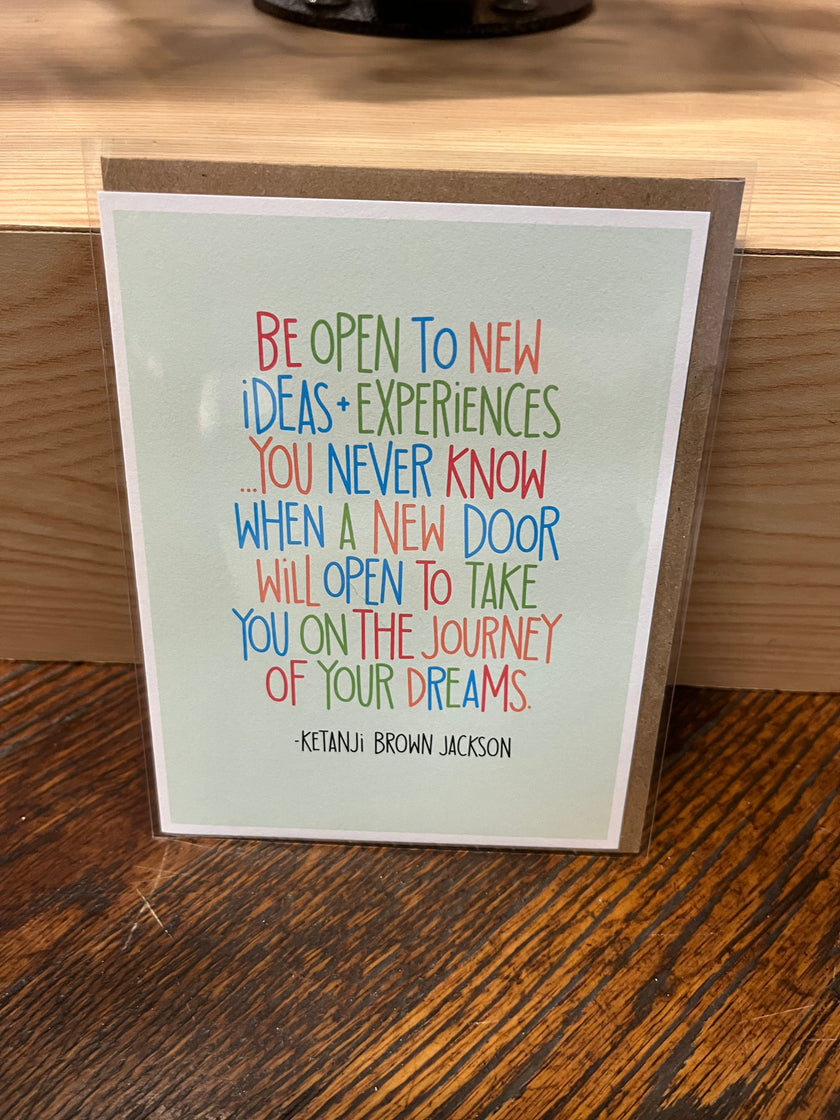 BE OPEN TO NEW
iDEAS + EXPERiENCES
...YOU NEVER KNOW
WHEN A NEW DOOR
WiLL OPEN TO TAKE
YOU ON THE JOURNEY
OF YOUR DREAMS.
-KETANJi BROWN JACKSON